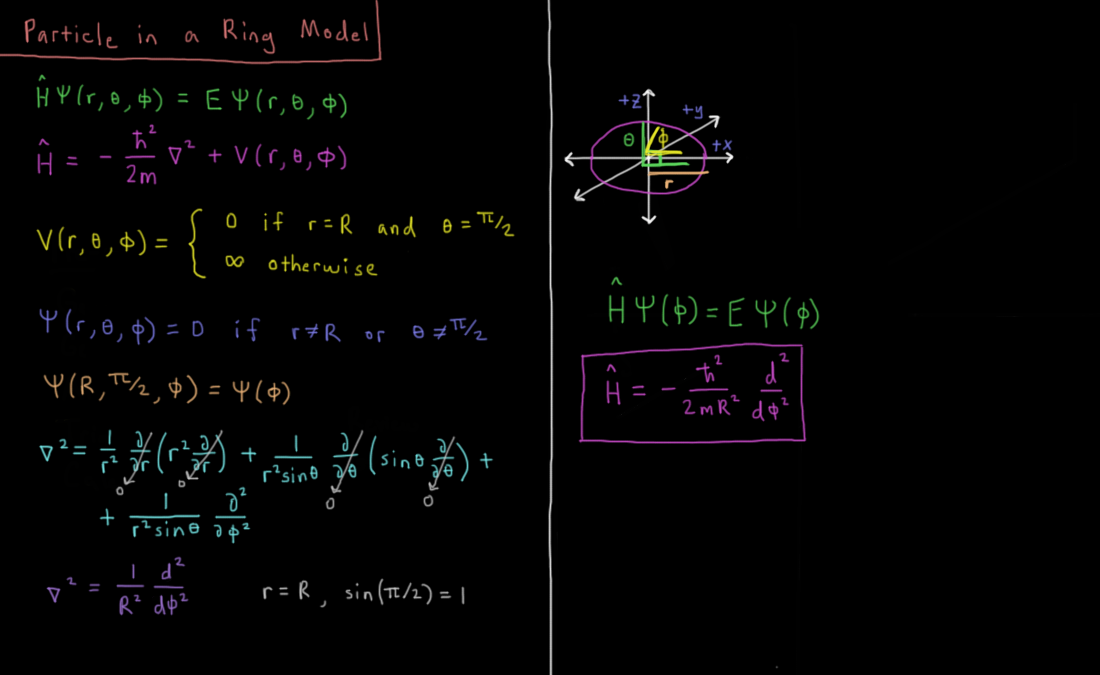 Particle in a Ring Model
Ĥ Ψ(r, θ, ϕ) = E Ψ(r, θ, ϕ)
Ĥ = - ħ²/2m ∇² + V(r, θ, ϕ)
V(r, θ, ϕ) = { 0 if r = R and θ = π/2
∞ otherwise
Ψ(r, θ, ϕ) = 0 if r ≠ R or θ ≠ π/2
Ψ(R, π/2, ϕ) = Ψ(ϕ)
∇² = 1/r² ∂/∂r (r² ∂/∂r) + 1/(r² sinθ) ∂/∂θ (sinθ ∂/∂θ) +
0 0 0 0
+ 1/(r² sinθ) ∂²/∂ϕ²
∇² = 1/R² d²/dϕ² r = R, sin(π/2) = 1
+z +y
θ ϕ +x
r
Ĥ Ψ(ϕ) = E Ψ(ϕ)
Ĥ = - ħ²/2mR² d²/dϕ²